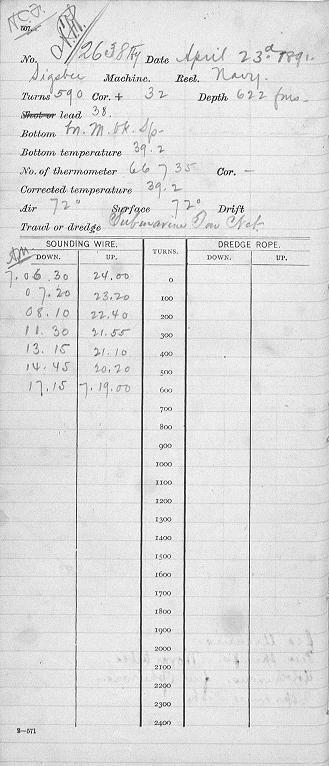 N.C.F.
No. 2638 Hy Date April 23d 1891
Sigsbee Machine. Reel. Navy.
Turns 590 Cor. + 32 Depth 622 fms
Shot or lead 38.
Bottom bk. Sp.
Bottom temperature 39.2
No. of thermometer 66735 Cor. -
Corrected temperature 39.2
Air 72° Surface 72° Drift
Trawl or dredge Submarine Tow Net.
A.M. SOUNDING WIRE. TURNS. DREDGE ROPE.
DOWN. UP. DOWN. UP.
7.06.30 24.00 0
07.20 23.20 100
08.10 22.40 200
11.30 21.55 300
13.15 21.10 400
14.45 20.20 500
17.15 7.19.00 600
700
800
900
1000
1100
1200
1300
1400
1500
1600
1700
1800
1900
2000
2100
2200
2300
2400
2—571